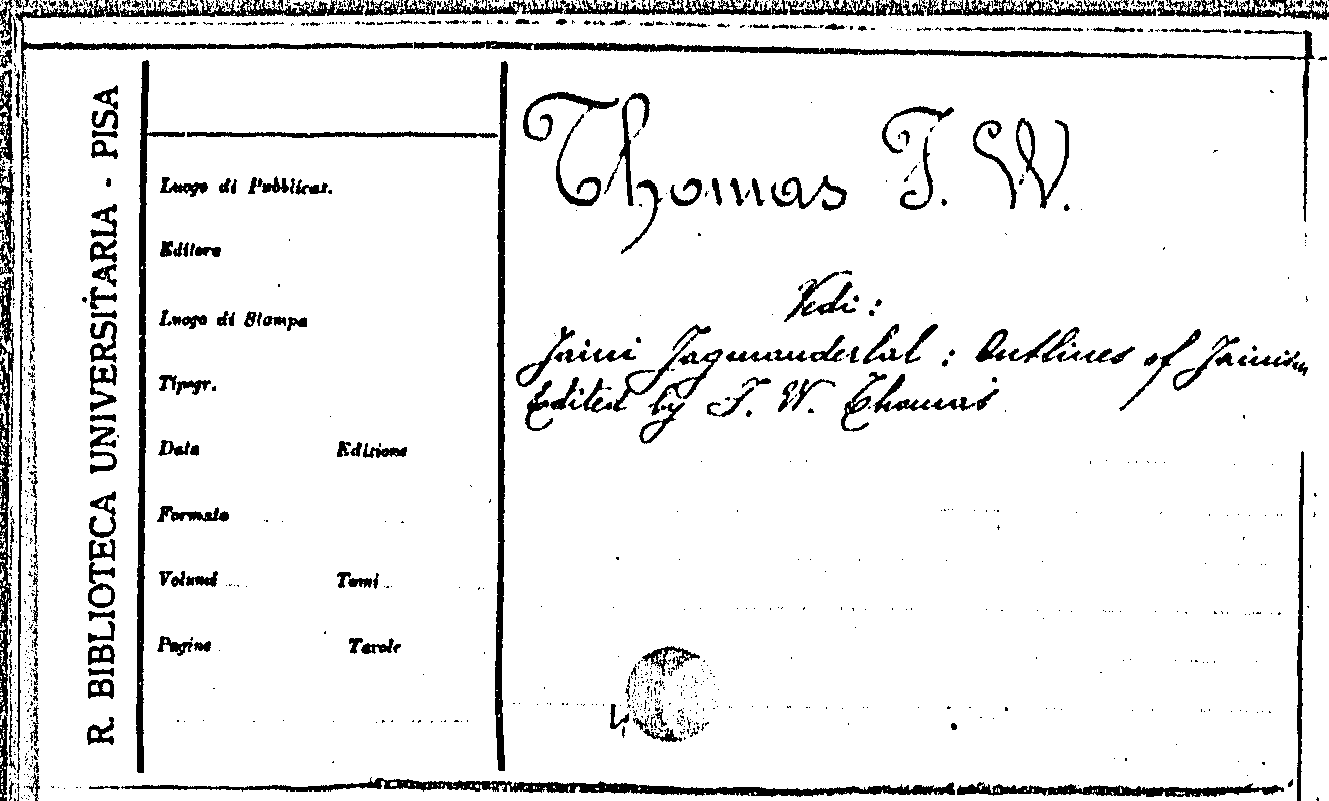 R. BIBLIOTECA UNIVERSITARIA - PISA
Luogo di Pubblicaz.
Editore
Luogo di Stampa
Tipogr.
Data Edizione
Formato
Volumi Tomi
Pagine Tavole
Thomas F. W.
Vedi :
Jaini Jagmanderlal : Outlines of Jainism
Edited by F. W. Thomas